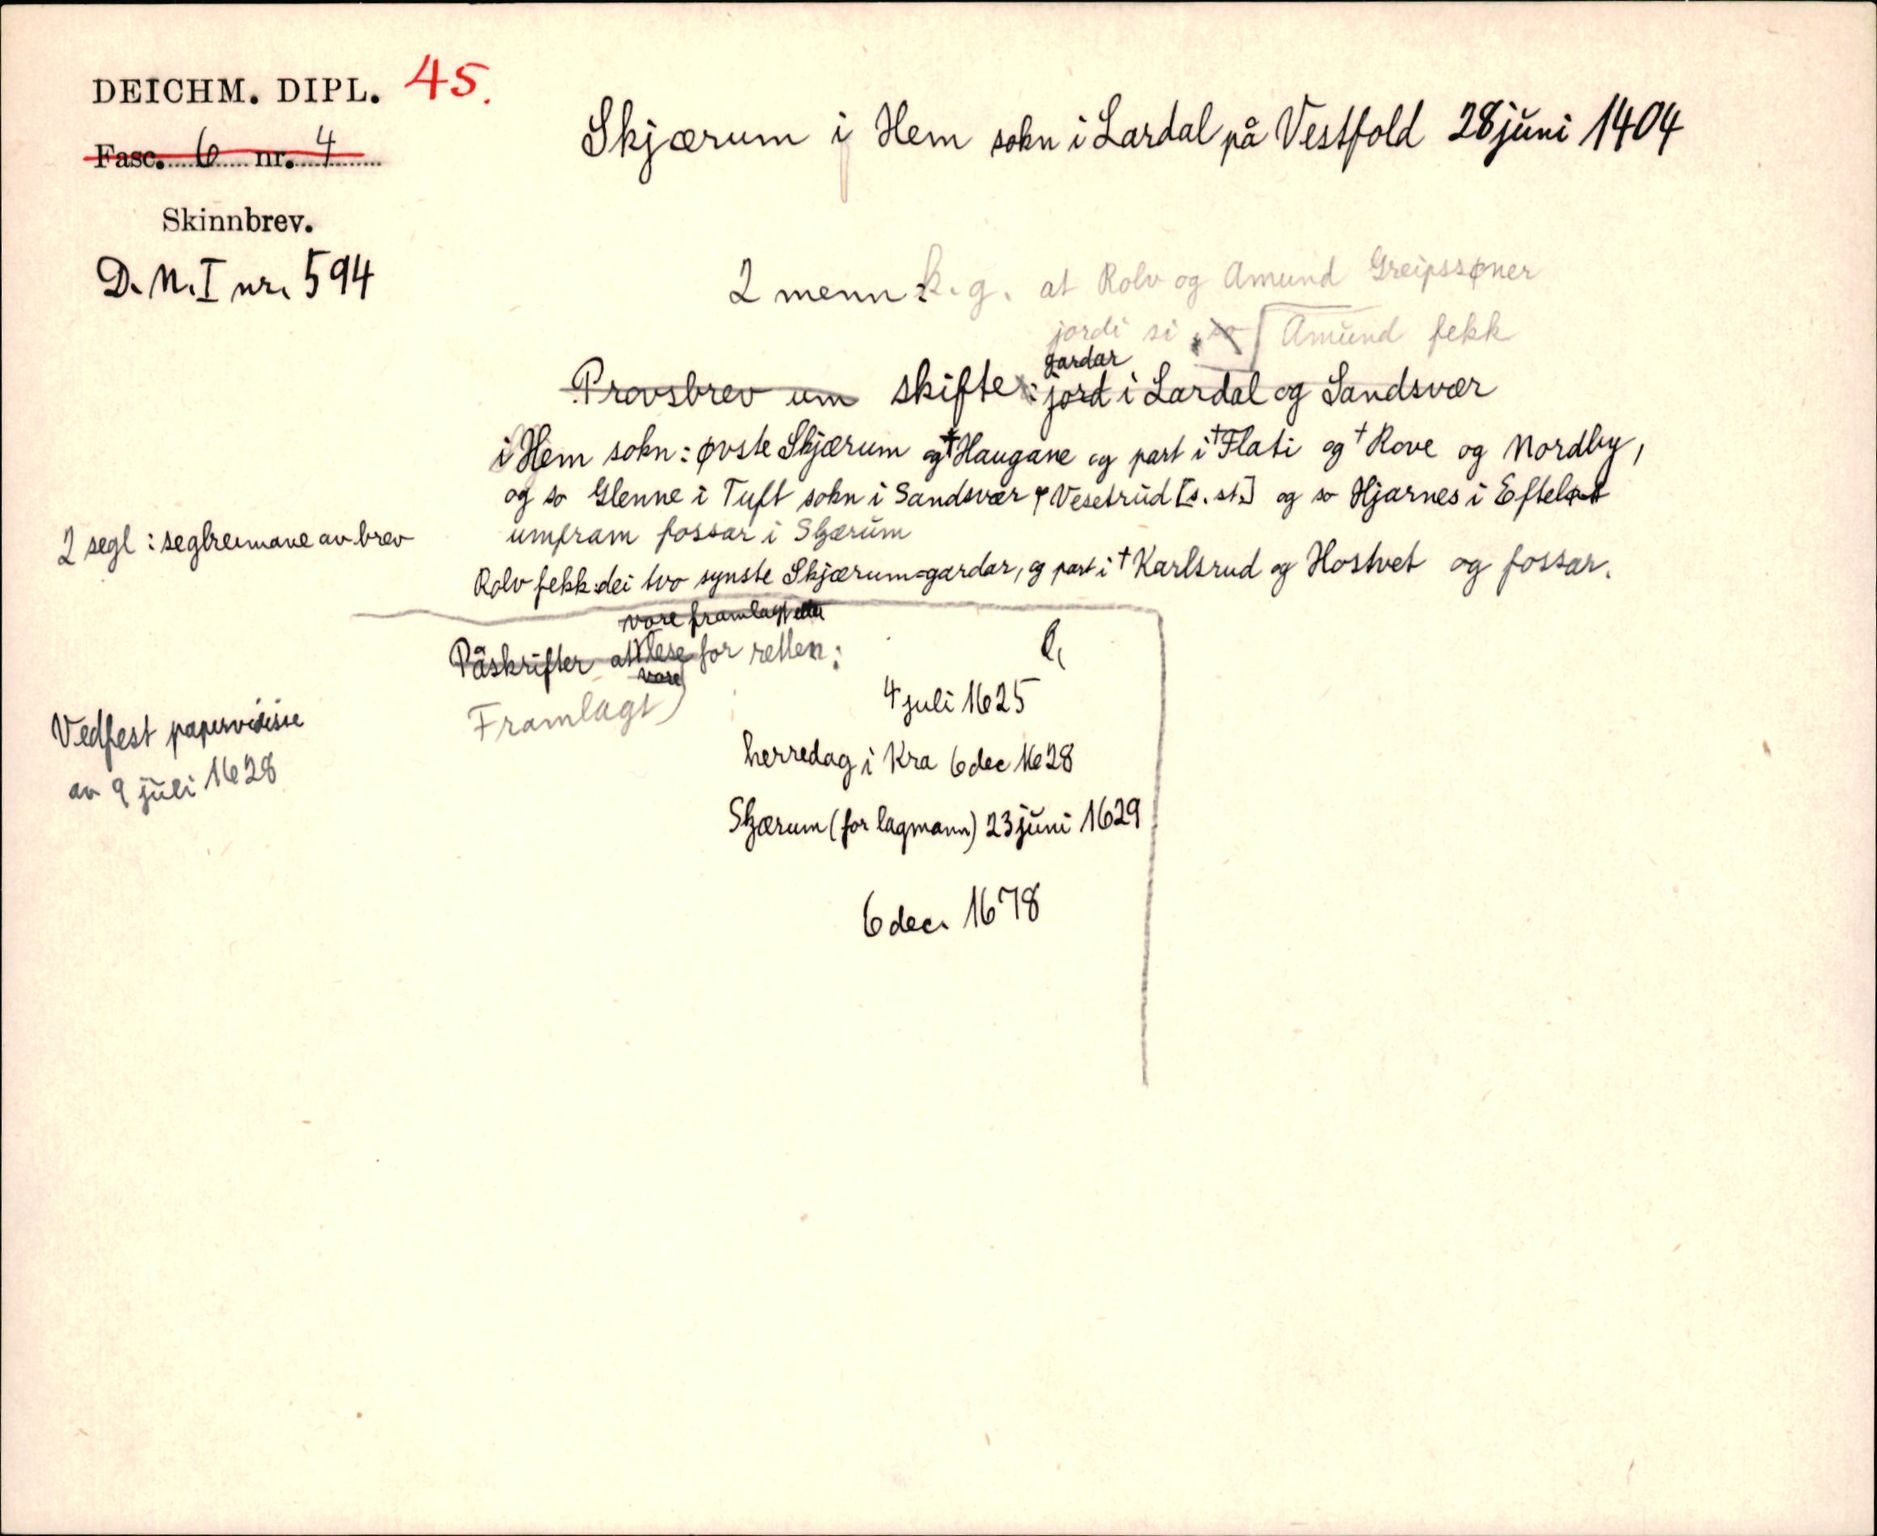 DEICHM. DIPL. 45.
Fasc. 6 nr. 4
Skinnbrev.
D.N. I nr. 594
Skjærum i Hem sokn i Lardal på Vestfold 28 juni 1404
2 menn k.g. at Rolv og Amund Greipssøner
jordi si, so Amund fekk
gardar
Provsbrev um skifte: jord i Lardal og Sandsvær
i Hem sokn: øvste Skjærum og †Haugane og part i †Flati og †Rove og Nordby,
og so Glenne i Tuft sokn i Sandsvær, Vesetrud [s. st.] og so Hjarnes i Efteløt
umfram fossar i Skjærum
Rolv fekk dei tvo synste Skjærum-gardar, og part i †Karlsrud og Hostvet og fossar.
2 segl: seglreimane av brev
vore framlagt
Påskrifter at lese for retten:
vore
Framlagt
4 juli 1625
herredag i Kra 6 dec 1628
Skjærum (for lagmann) 23 juni 1629
6 dec. 1678
Vedfest papirvidisse
av 9 juli 1628